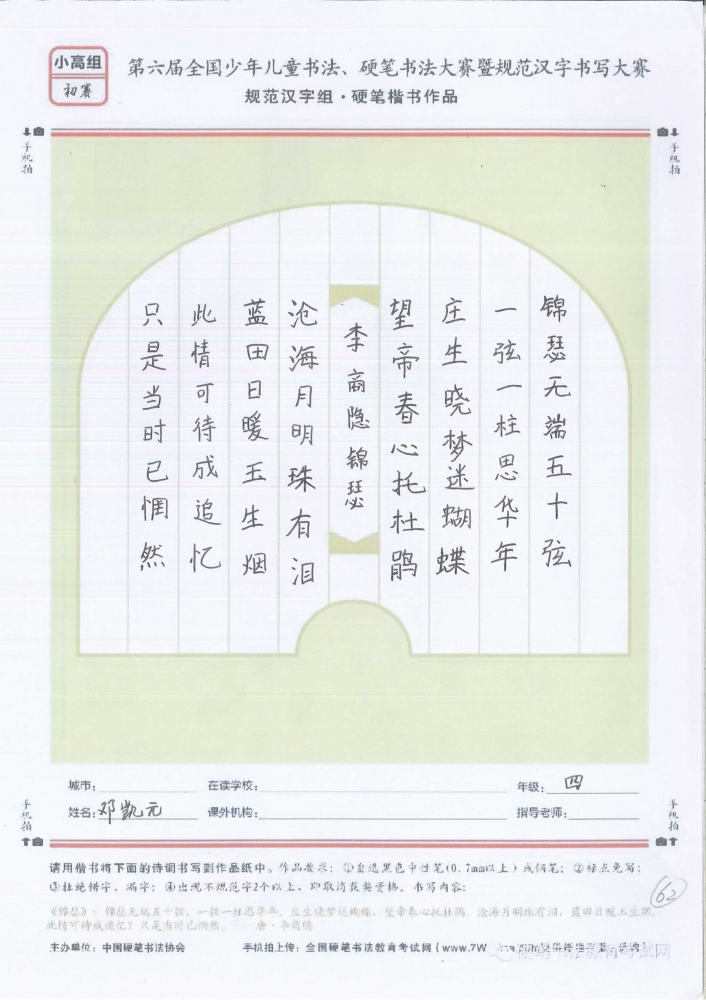 小高组
初赛
第六届全国少年儿童书法、硬笔书法大赛暨规范汉字书写大赛
规范汉字组·硬笔楷书作品
手机拍
手机拍
锦瑟无端五十弦
一弦一柱思华年
庄生晓梦迷蝴蝶
望帝春心托杜鹃
李商隐锦瑟
沧海月明珠有泪
蓝田日暖玉生烟
此情可待成追忆
只是当时已惘然
城市: 在读学校: 年级: 四
姓名: 邓凯元 课外机构: 指导老师:
手机拍
手机拍
请用楷书将下面的诗词书写到作品纸中。作品要求:①自选黑色中性笔(0.7mm以上)或钢笔;②标点免写;
③杜绝错字、漏字;④出现不规范字2个以上,即取消获奖资格。书写内容:
62
《锦瑟》:锦瑟无端五十弦,一弦一柱思华年。庄生晓梦迷蝴蝶,望帝春心托杜鹃。沧海月明珠有泪,蓝田日暖玉生烟。
此情可待成追忆?只是当时已惘然。——唐·李商隐
主办单位:中国硬笔书法协会 手机拍上传:全国硬笔书法教育考试网(www.7W
硬笔书法教育考试网